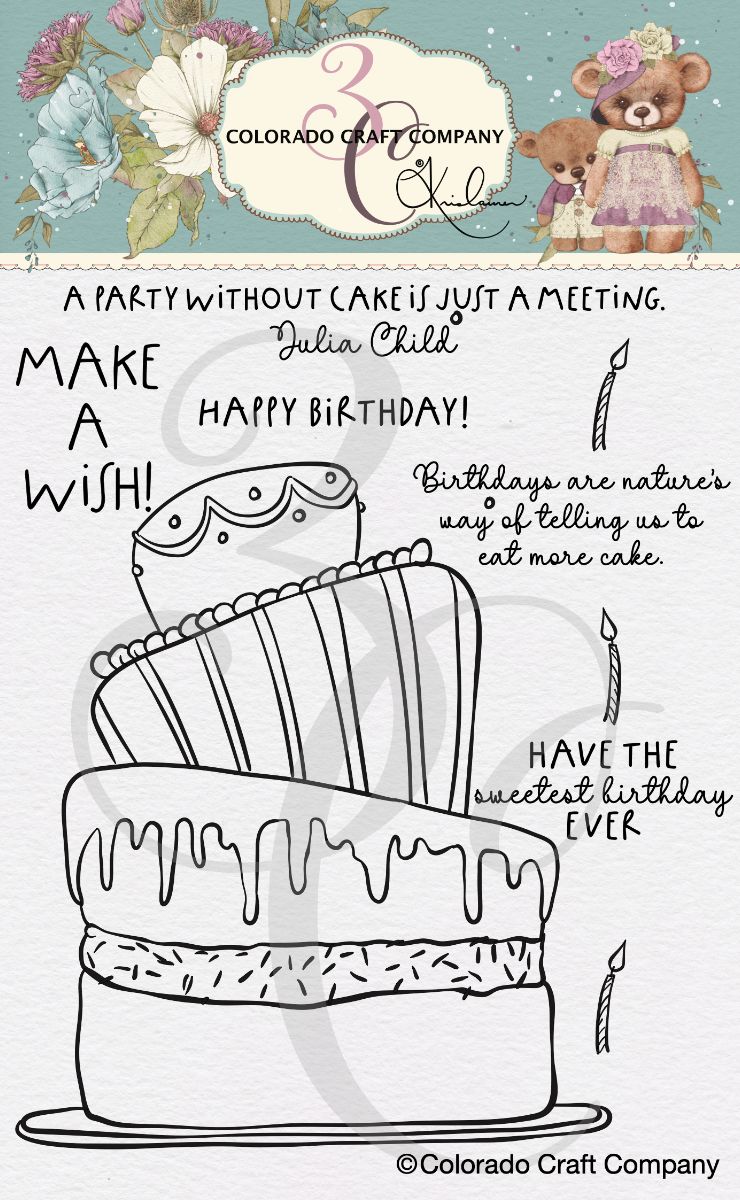 3C
COLORADO CRAFT COMPANY
©Krislauren
A PARTY WITHOUT CAKE IS JUST A MEETING.
Julia Child
MAKE
A
WISH!
HAPPY BIRTHDAY!
Birthdays are nature's
way of telling us to
eat more cake.
HAVE THE
sweetest birthday
EVER
3C
©Colorado Craft Company